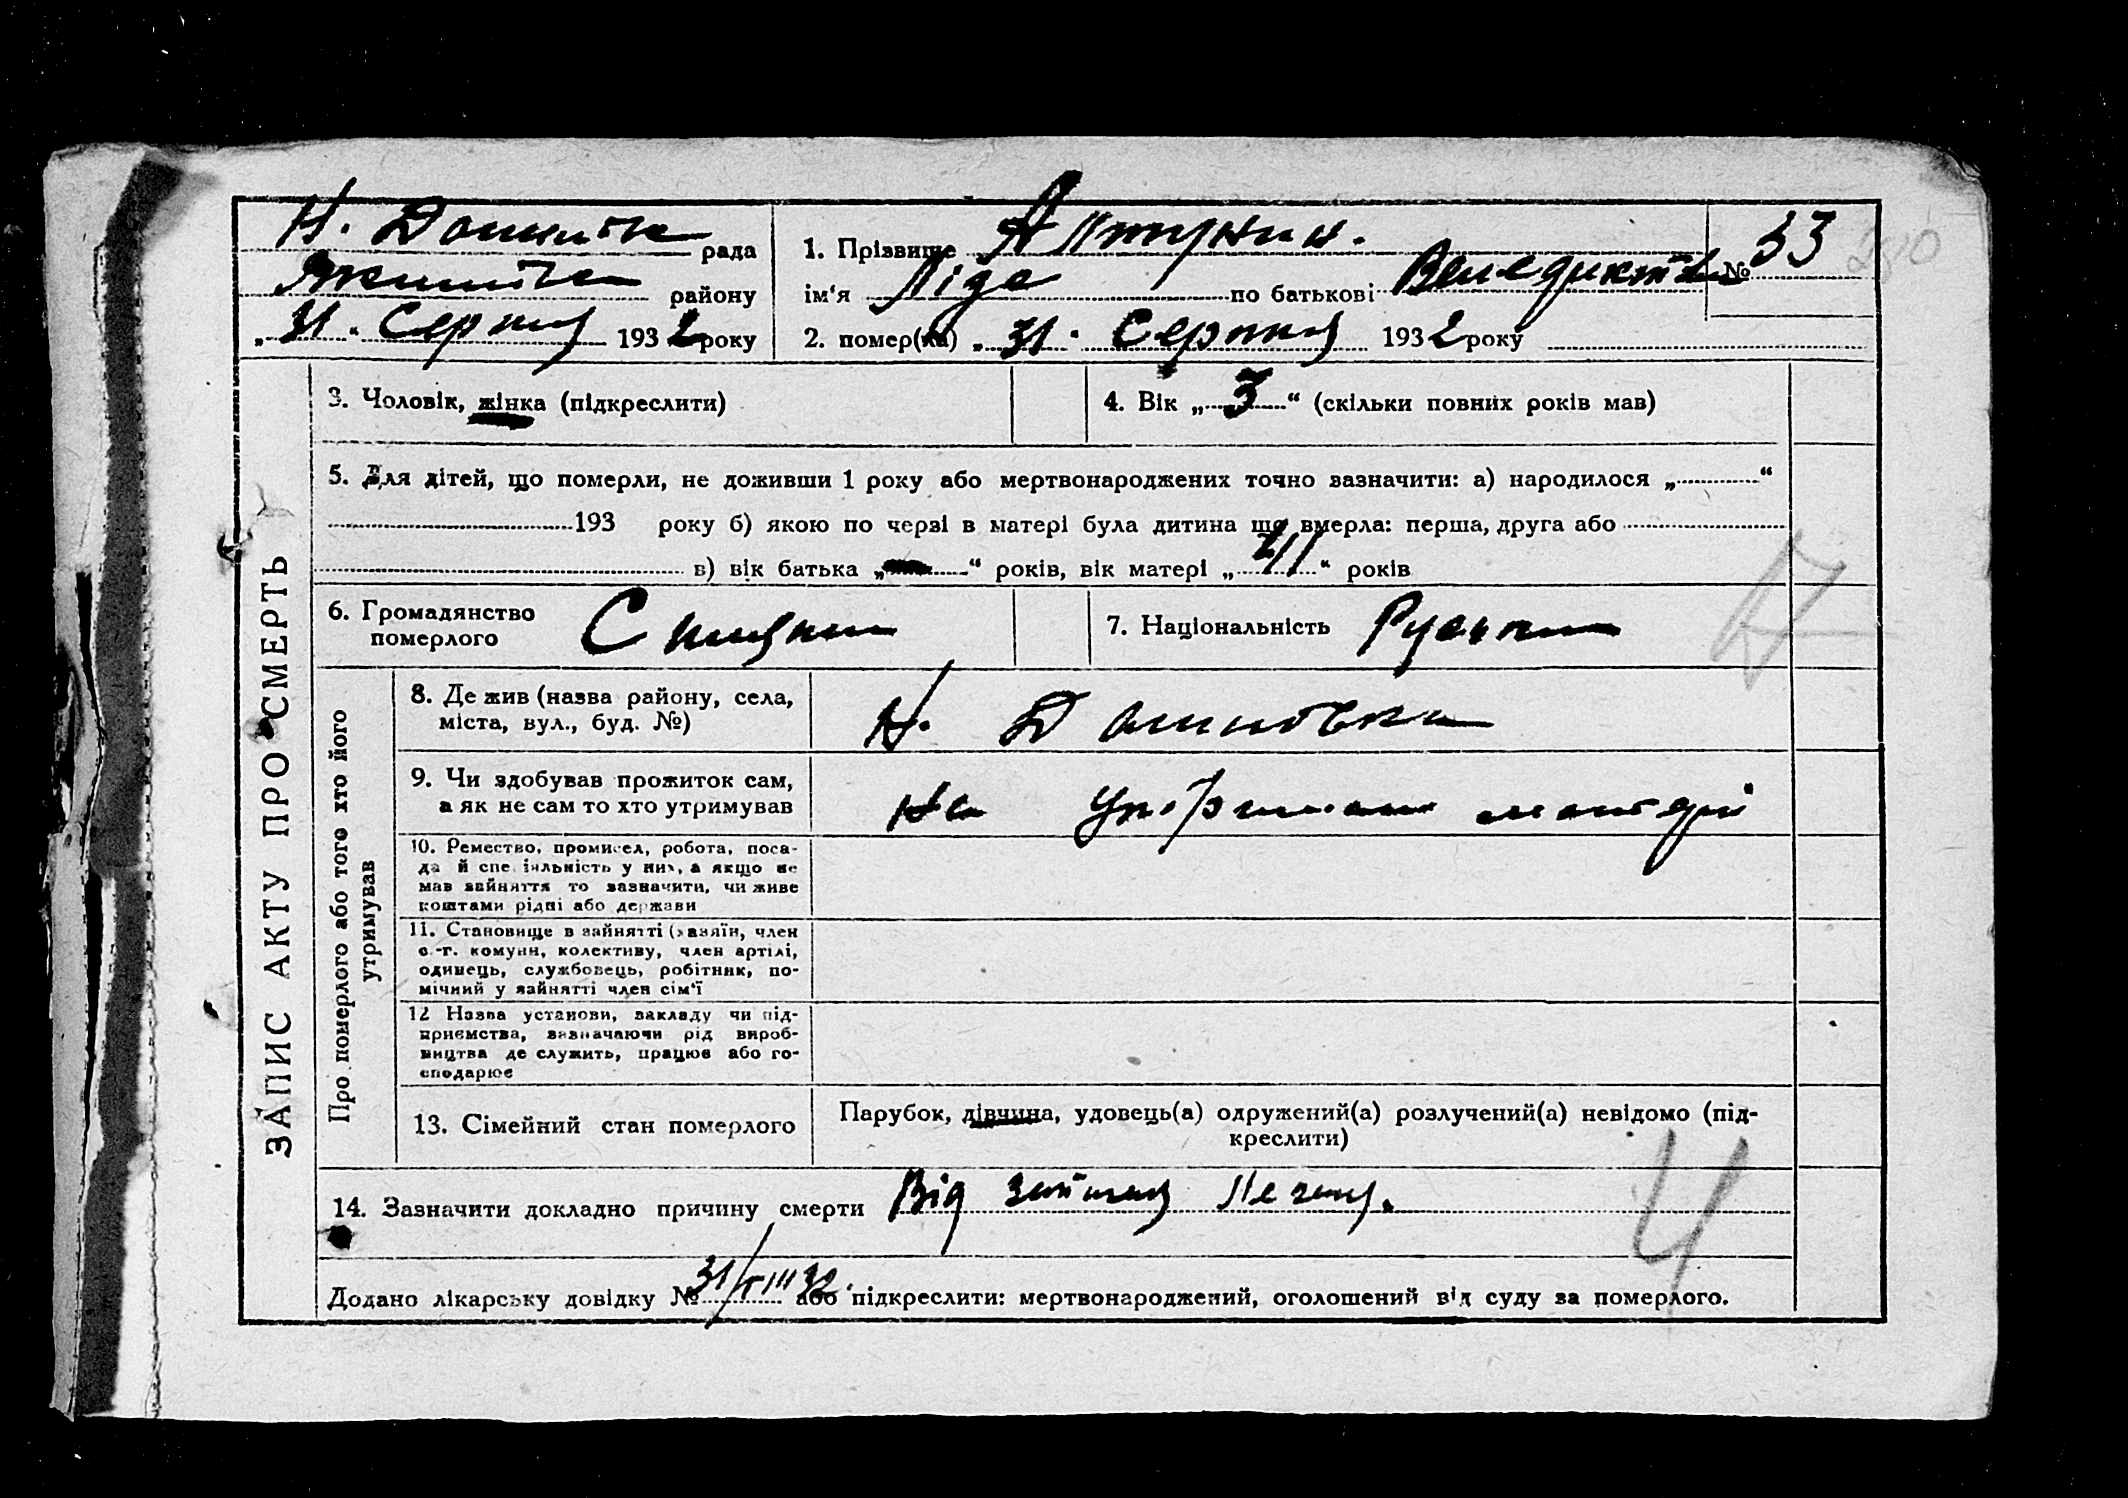 ЗАПИС АКТУ ПРО СМЕРТЬ
рада
району
„31“ Серпня 1932 року
1. Прізвище
ім‘я Ліда по батькові
№ 53
2. помер(ла) „31“ Серпня 1932 року
3. Чоловік, жінка (підкреслити)
4. Вік „3“ (скільки повних років мав)
5. Для дітей, що померли, не доживши 1 року або мертвонароджених точно зазначити: а) народилося „ “
193 року б) якою по черзі в матері була дитина що вмерла: перша, друга або
в) вік батька „ “ років, вік матері „41“ років
6. Громадянство
померлого
7. Національність Руська
Про померлого або того хто його
утримував
8. Де жив (назва району, села,
міста, вул., буд. №)
Н. Дашковка
9. Чи здобував прожиток сам,
а як не сам то хто утримував
На матері
10. Ремество, промисел, робота, поса-
да й спеціяльність у них, а якщо не
мав зайняття то зазначити, чи живе
коштами рідні або держави
11. Становище в зайнятті (хазяїн, член
с.-г. комуни, колективу, член артілі,
одинець, службовець, робітник, по-
мічний у зайнятті член сім‘ї
12 Назва установи, закладу чи під-
приємства, зазначаючи рід вироб-
ництва де служить, працює або го-
сподарює
13. Сімейний стан померлого
Парубок, дівчина, удовець(а) одружений(а) розлучений(а) невідомо (під-
креслити)
14. Зазначити докладно причину смерти Від
Додано лікарську довідку № 31/VIII 32 або підкреслити: мертвонароджений, оголошений від суду за померлого.